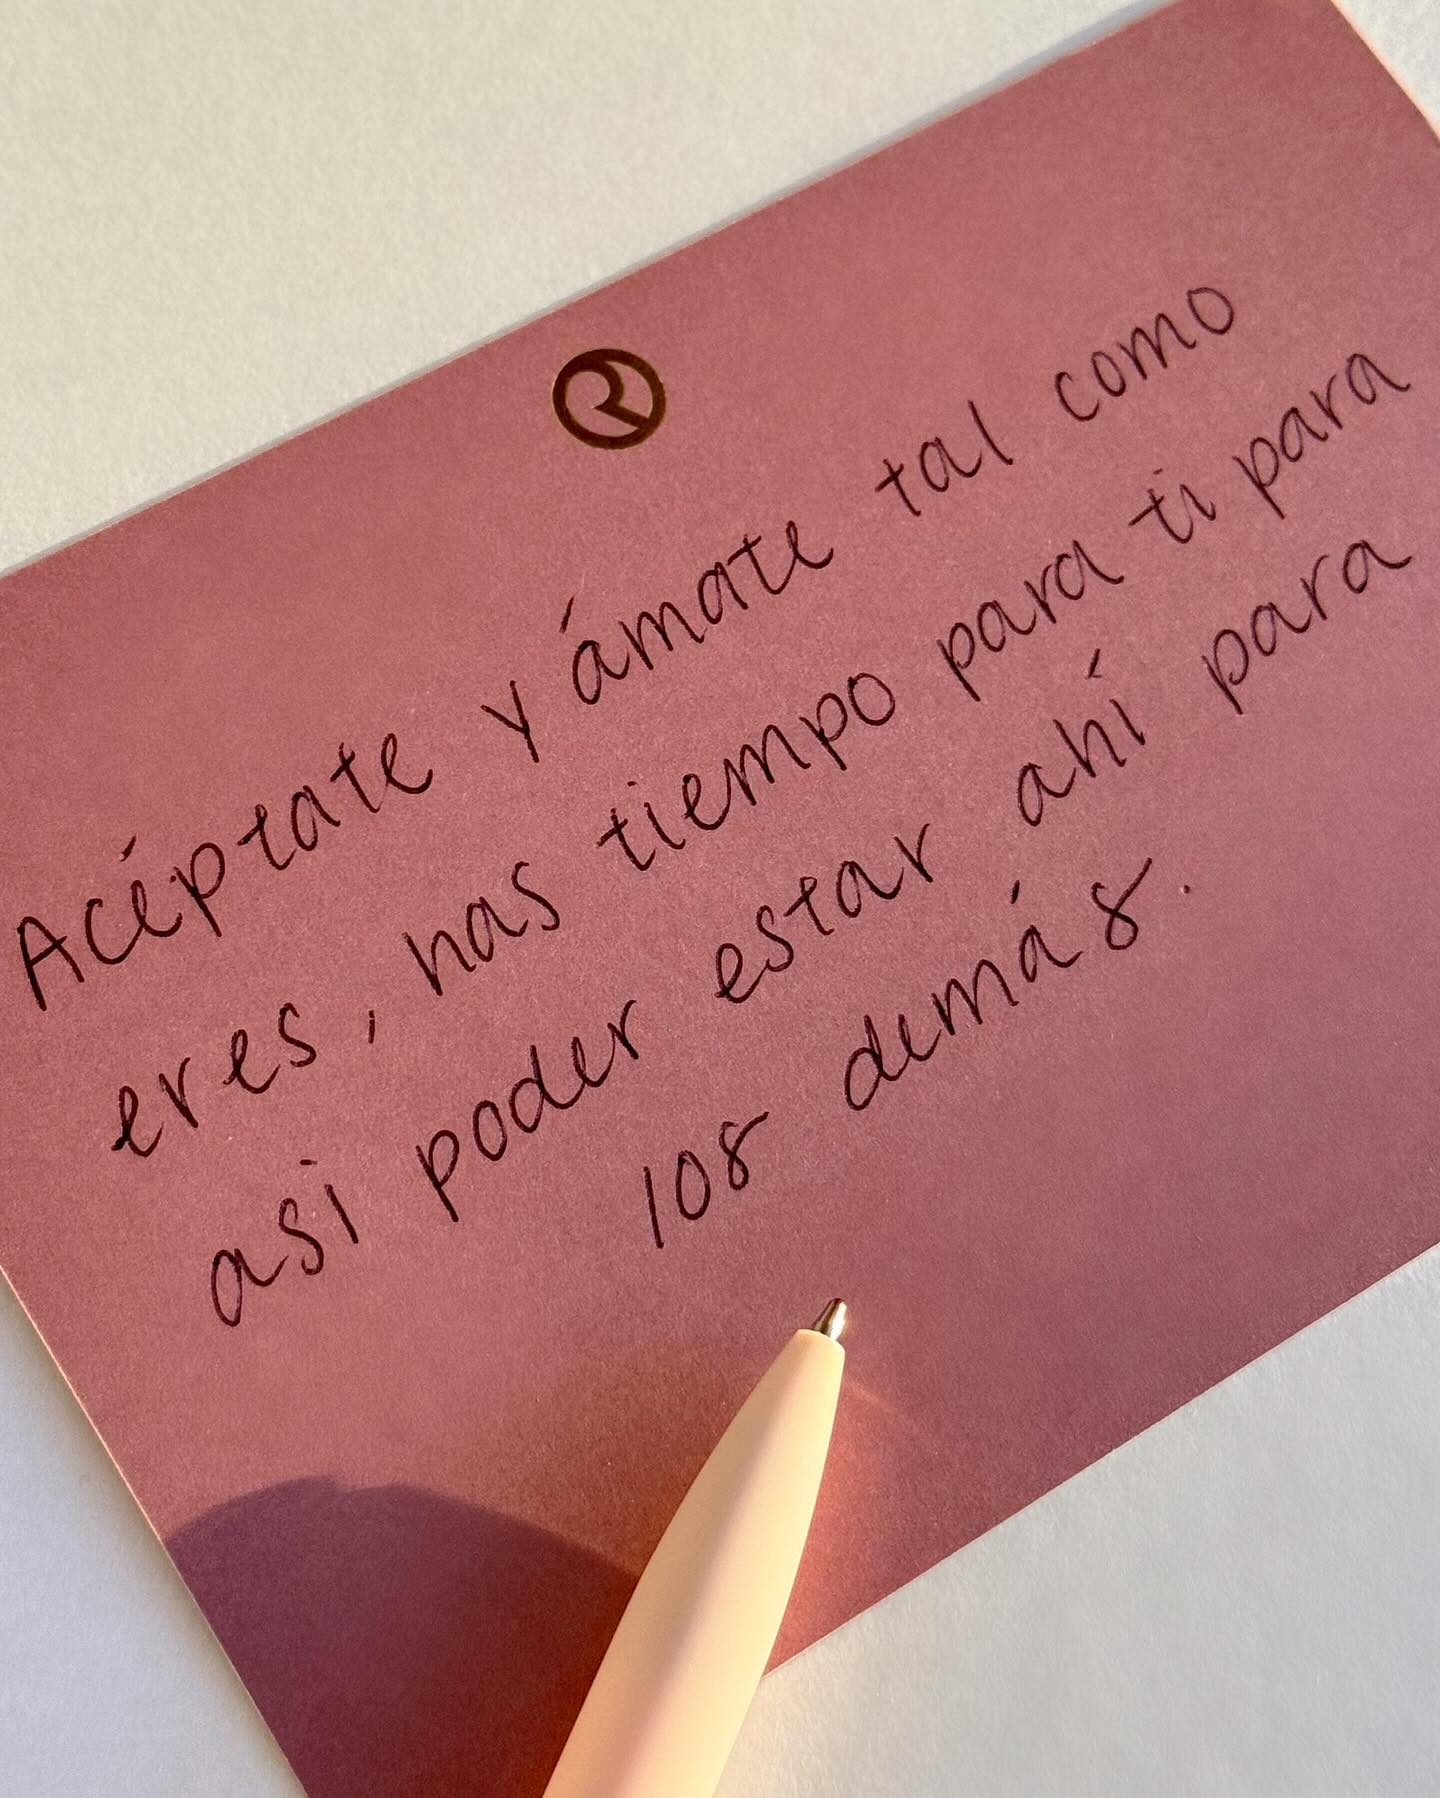 Acéptate y ámate tal como
eres, has tiempo para ti para
asi poder estar ahí para
los demás.